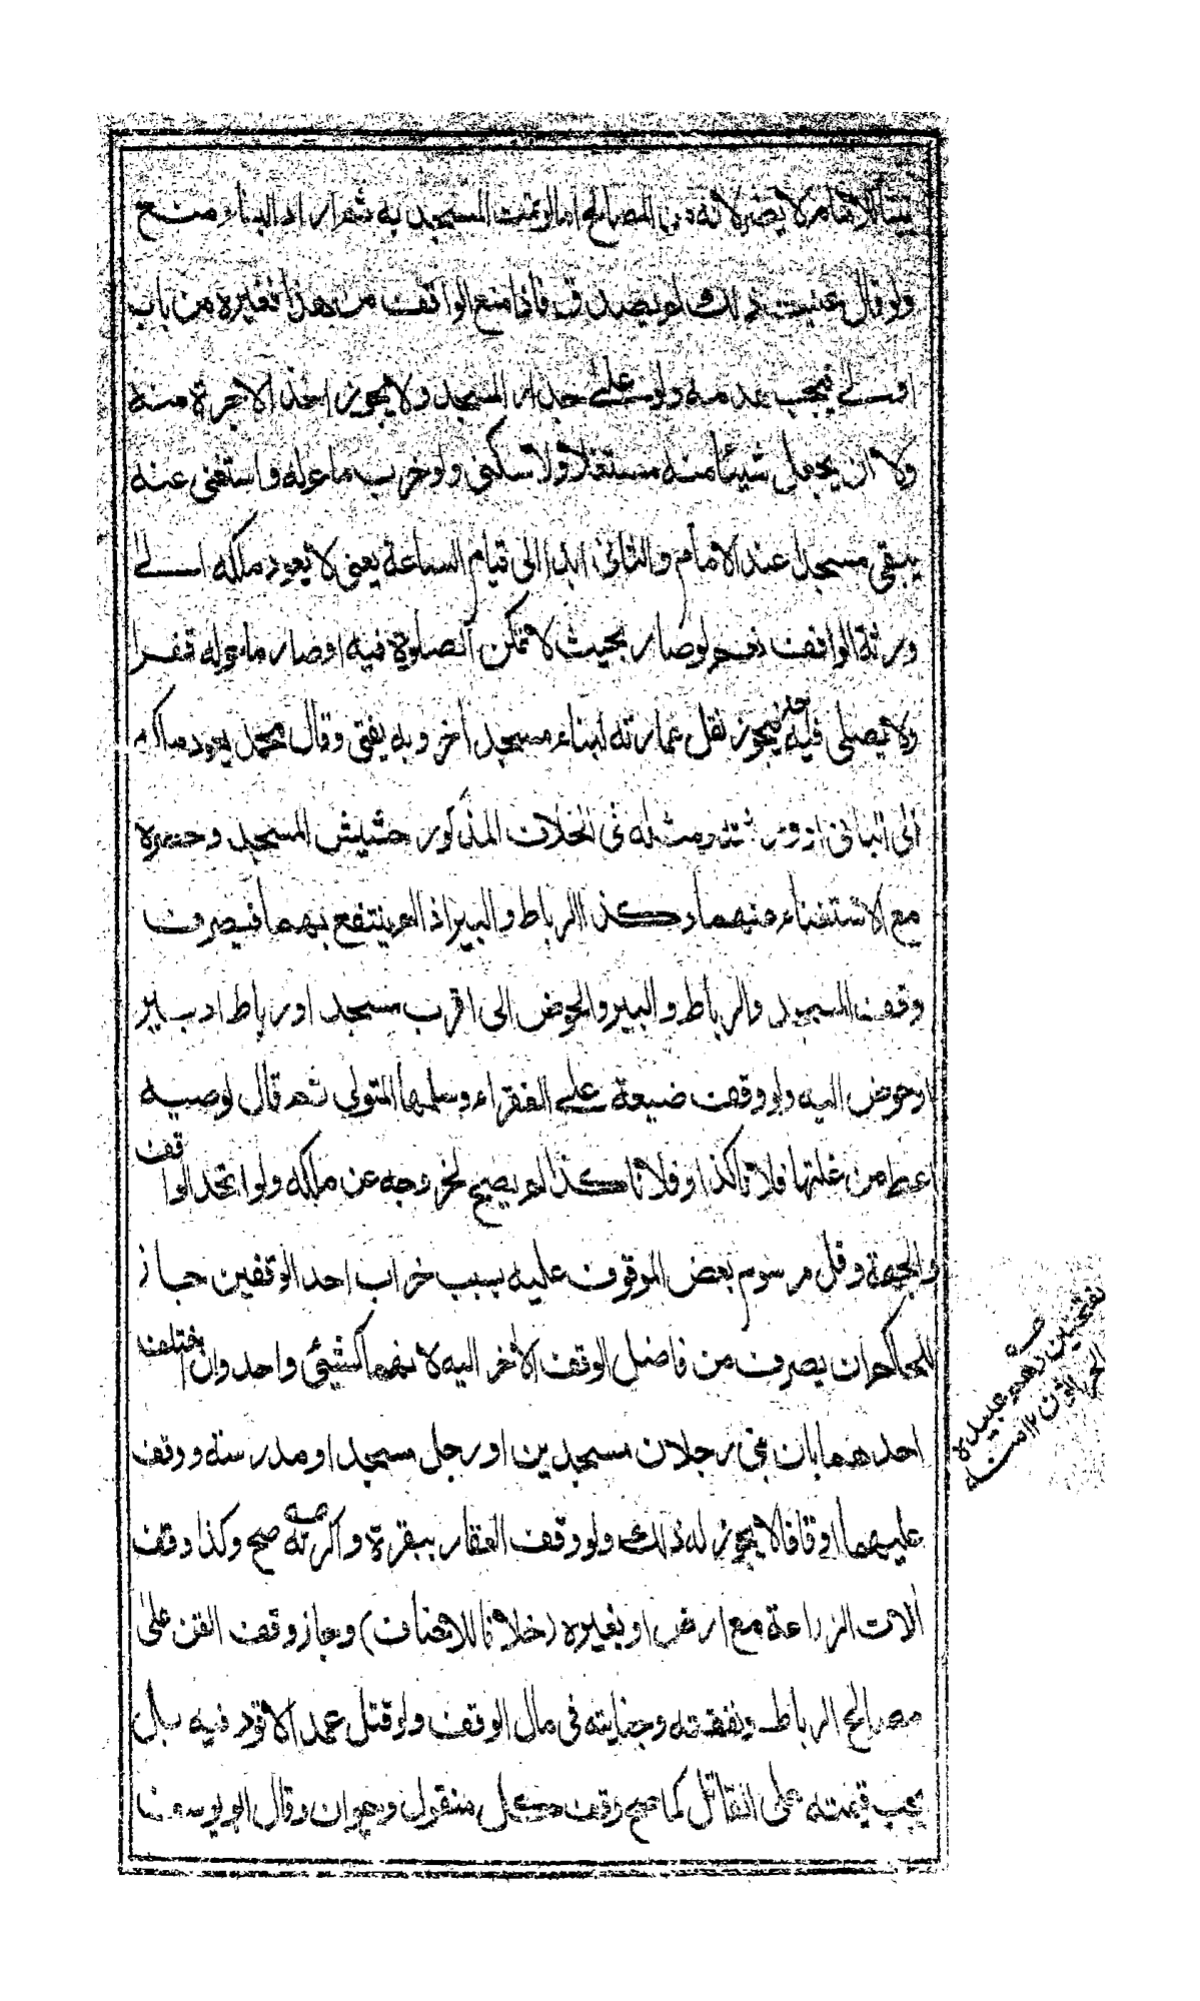 بيتا للامام لا يضر لانه من المصالح اما لو تمت المسجدية ثم اراد البناء منع
ولو قال عنيت ذلك لم يصدق فاذا منع الواقف من هذا فغيره من باب
اولى فيجب هدمه ولو على جدار المسجد ولا يجوز اخذ الاجرة منه
ولا ان يجعل شيئا منه مستغلا ولا سكنى ولو خرب ما حوله واستغنى عنه
يبقى مسجدا عند الامام والثانى ابدا الى قيام الساعة يعنى لا يعود ملكه الى
ورثة الواقف لو صار بحيث لا تمكن الصلوة فيه او صار ما حوله قفرا
ولا يصلى فيه فيجوز نقل عمارته لبناء مسجد اخر وبه يفتى وقال محمد يعود ملكا
الى البانى او ورثته ومثله فى الخلاف المذكور حشيش المسجد وحصره
مع الاستغناء عنهما وكذا الرباط والبير اذا لم ينتفع بهما فيصرف
وقف المسجد والرباط والبير والحوض الى اقرب مسجد او رباط او بير
او حوض اليه ولو وقف ضيعة على الفقراء وسلمها للمتولى ثم قال لوصيه
اعط من غلتها فلانا كذا وفلانا كذا لم يصح لخروجه عن ملكه ولو اتحد الواقف
والجهة وقل مرسوم بعض الموقوف عليه بسبب خراب احد الوقفين جاز
للحاكم ان يصرف من فاضل الوقف الاخر اليه لانهما كشيئ واحد وان اختلف
احدهما بان بنى رجلان مسجدين او رجل مسجدا ومدرسة ووقف
عليهما اوقافا لا يجوز له ذلك ولو وقف العقار ببقرة واكرته صح وكذا وقف
الات الزراعة مع ارض او بغيره (خلافا للانصاف) وجاز وقف القن على
مصالح الرباط ونفقته وجنايته فى مال الوقف ولو قتل عمدا لا قود فيه بل
يجب قيمته على القاتل كما صح وقف كل منقول وحيوان وقال ابو يوسف
بفتحتين وهم عبيده
الحراثون ١٢ منه